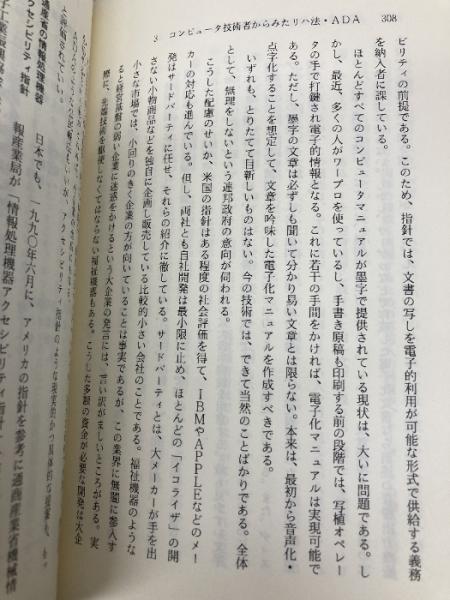 3 コンピュータ技術者からみたリハ法・ADA 308
ビリティの前提である。このため、指針では、文書の写しを電子的利用が可能な形式で供給する義務
を納入者に課している。
ほとんどすべてのコンピュータマニュアルが墨字で提供されている現状は、大いに問題である。し
かし、最近、多くの人がワープロを使っているし、手書き原稿も印刷する前の段階では、写植オペレー
タの手で打鍵され電子的情報となる。これに若干の手間をかければ、電子化マニュアルは実現可能で
ある。ただし、墨字の文章は必ずしも聞いて分かり易い文章とは限らない。本来は、最初から音声化・
点字化することを想定して、文章を吟味した電子化マニュアルを作成すべきである。
いずれも、とりたてて目新しいものはない。今の技術では、できて当然のことばかりである。全体
として、無理をしないという連邦政府の意向が伺われる。
こうした配慮のせいか、米国の指針はある程度の社会評価を得て、IBMやAPPLEなどのメー
カーの対応も進んでいる。但し、両社とも自社開発は最小限に止め、ほとんどの「イコライザ」の開
発はサードパーティに任せ、それらの紹介に徹している。サードパーティとは、大メーカーが手を出
さない小物商品などを独自に企画し販売している比較的小さい会社のことである。福祉機器のような
小さな市場では、小回りのきく企業の方が向いていることは事実であるが、この業界に無闇に参入す
ると経営基盤の弱い企業に迷惑をかけるという大企業の発言には、言い訳がましいところがある。実
際に、先端技術を駆使しなくてはならない福祉機器もある。こうした多額の資金が必要な開発は大企
アクセシビリティ指針のような現実的かつ具体的な
通産省の情報処理機器
アクセシビリティ指針
日本でも、一九九〇年六月に、アメリカの指針を参考に通商産業省機械情
報産業局が「情報処理機器アクセシビリティ指針